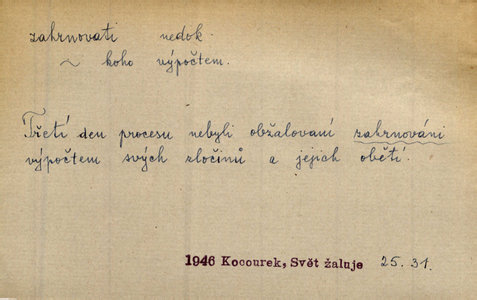 zahrnovati nedok.
~ koho výpočtem.
Třetí den procesu nebyli obžalovaní zahrnováni
výpočtem svých zločinů a jejich obětí.
1946 Kocourek, Svět žaluje 25. 31.